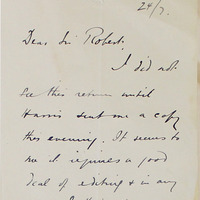 24/7.
Dear Sir Robert.
I did not
see this return until
Harris sent me a copy
this evening. It seems to
me it requires a good
deal of editing & in any